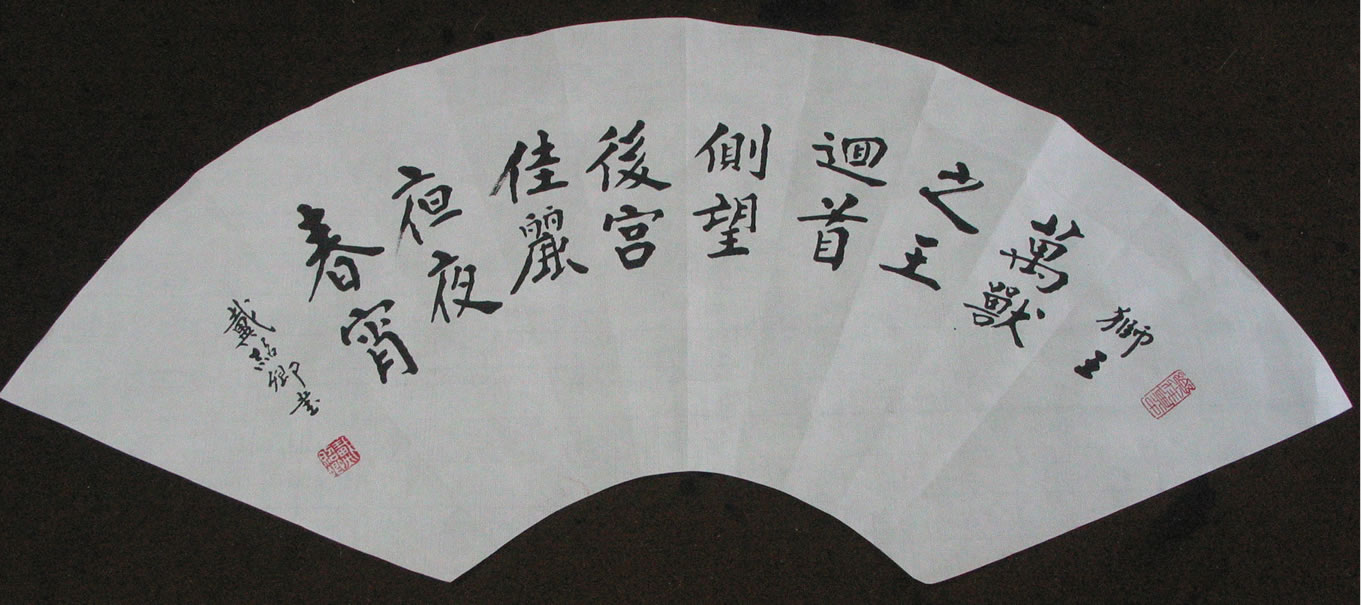 獅王
萬獸
之王
迴首
側望
後宮
佳麗
夜夜
春宵
戴紹卿書